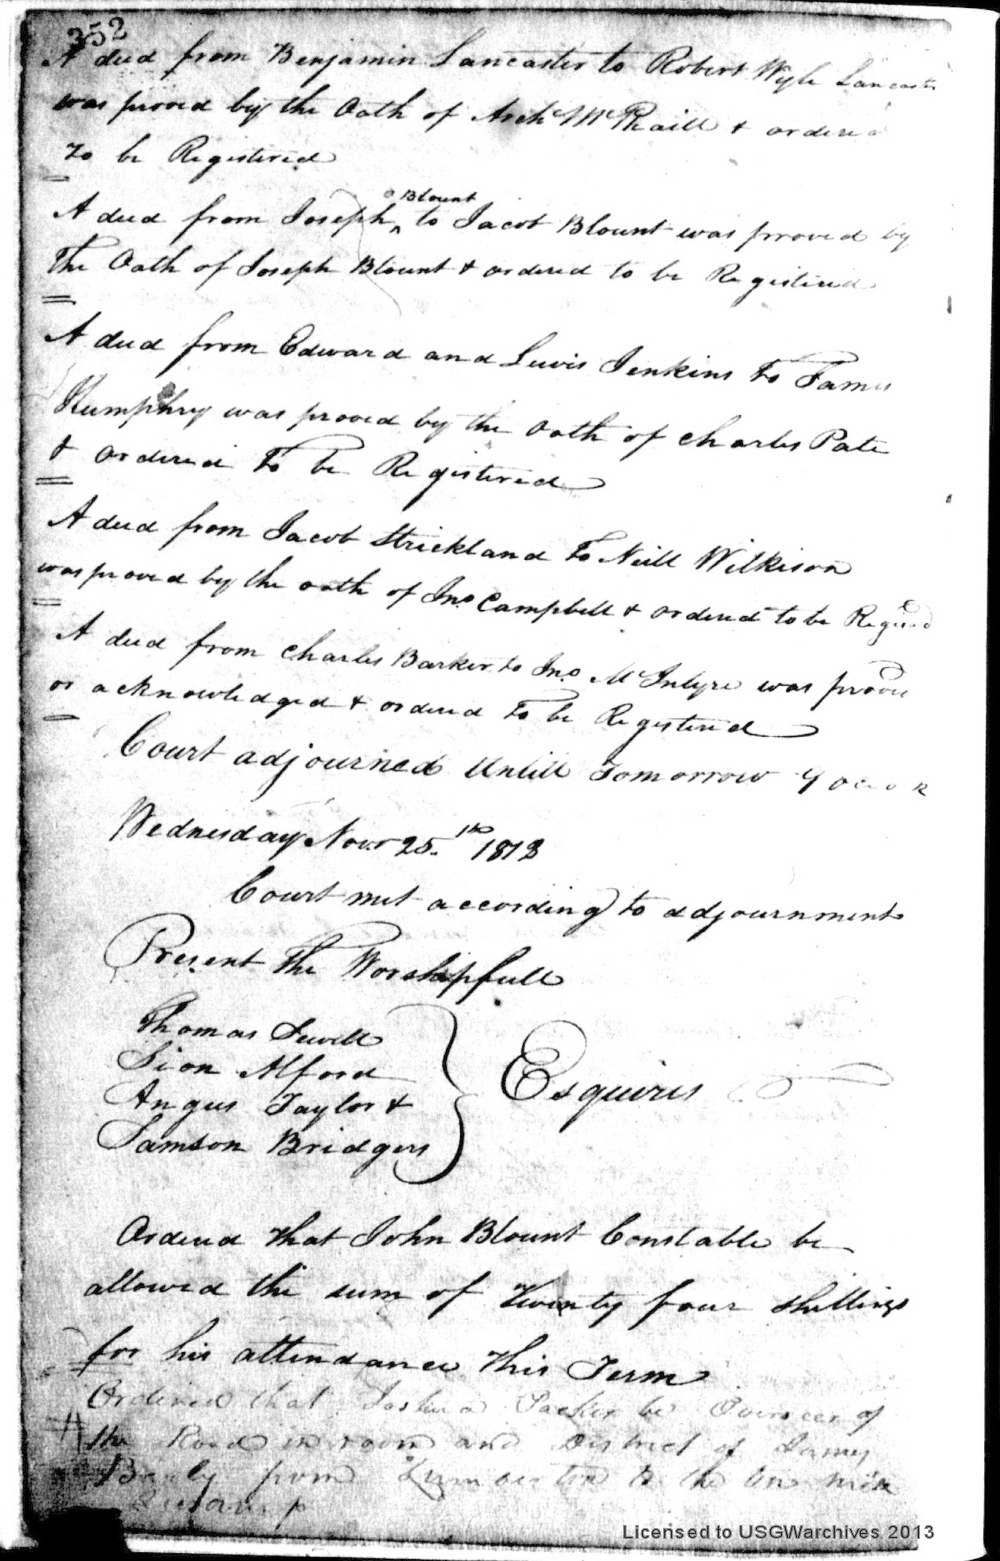 352
A deed from Benjamin Lancaster to Robert Wyle Lancaster
was proved by the Oath of Arch McPhaill & ordered
to be Registered
A deed from Joseph Blount to Jacob Blount was proved by
the Oath of Joseph Blount & ordered to be Registered
A deed from Edward and Lewis Jenkins to James
Humphry was proved by the oath of Charles Pate
& ordered to be Registered
A deed from Jacob Strickland to Neill Wilkison
was proved by the oath of Jno Campbell & ordered to be
A deed from Charles Barker to Jno McIntyre was proved
or acknowledged & ordered to be Registered
Court adjourned Untill Tomorrow 9 oclock
Wednesday Novr 25th 1813
Court met according to adjournment
Present the Worshipfull
Thomas Sewell
Sion Alford
Angus Taylor &
Samson Bridgers
Esquires
Ordered that John Blount Constable be
allowed the sum of Twenty four shillings
for his attendance this Term
Ordered that Joshua be Overseer of
the Road in room and District of
from Lumberton to the ten mile
Swamp
Licensed to USGWarchives 2013